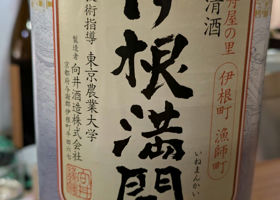 舟屋の里
伊根町 漁師町
清酒
伊根満開
いねまんかい
技術指導 東京農業大学
製造者 向井酒造株式会社
京都府与謝郡伊根町平田六七